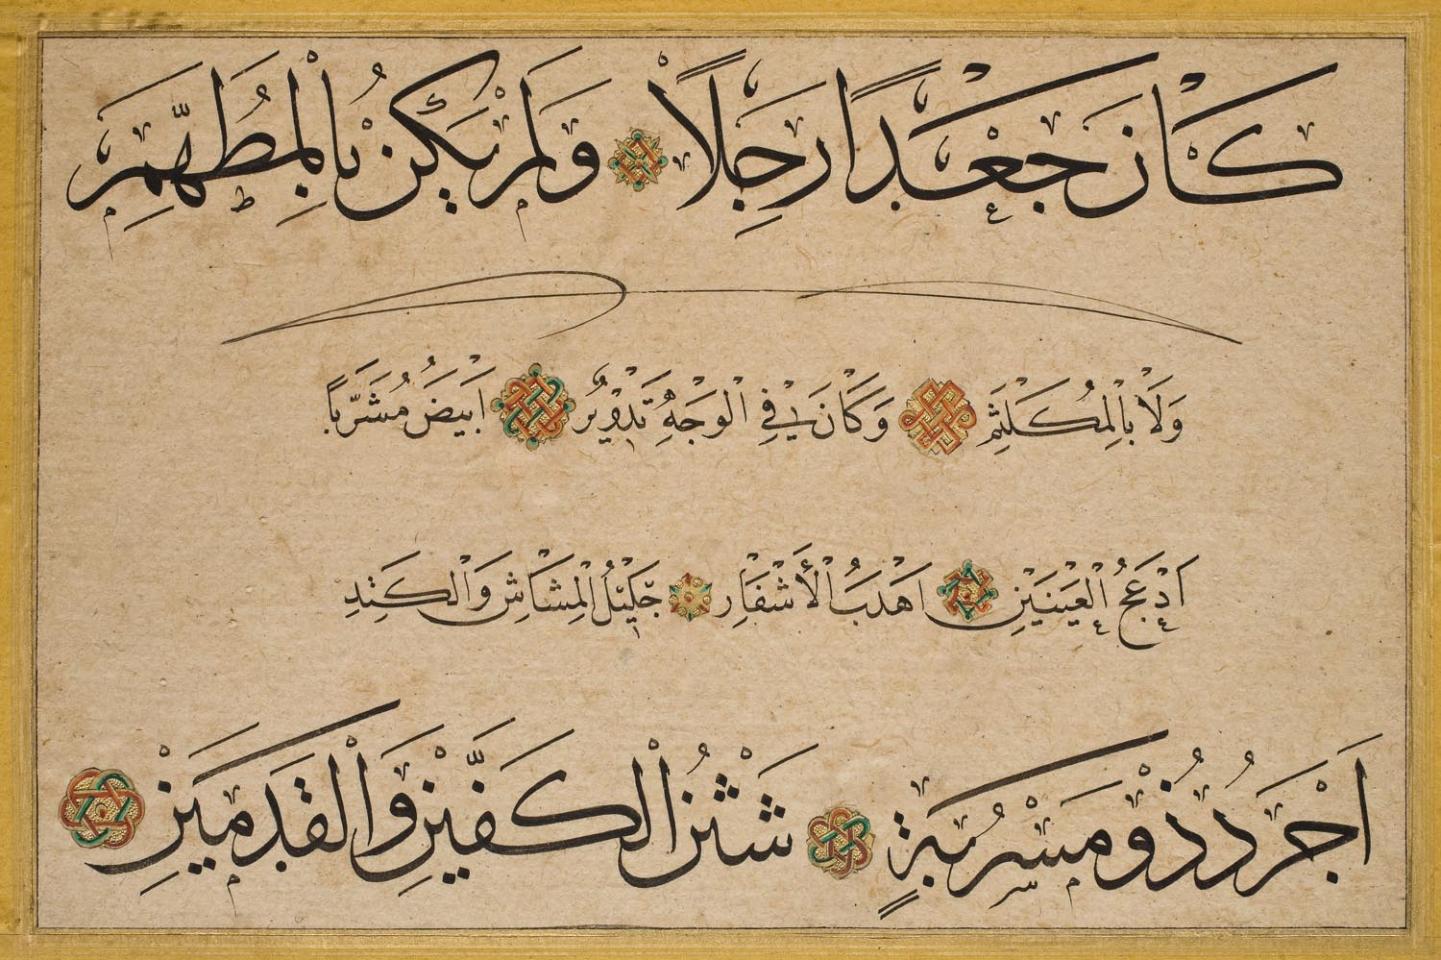 كَانَ جَعْدًا رَجِلًا وَلَمْ يَكُنْ بِالْمُطَهَّمِ
وَلَا بِالْمُكَلْثَمِ وَكَانَ فِي الْوَجْهِ تَدْوِيرٌ اَبْيَضُ مُشَرَّبًا
اَدْعَجُ الْعَيْنَيْنِ اَهْدَبُ الْأَشْفَارِ جَلِيْلُ الْمُشَاشِ وَالْكَتِدِ
اَجْرَدُ ذُوْ مَسْرُبَةٍ شَثْنُ الْكَفَّيْنِ وَالْقَدَمَيْنِ